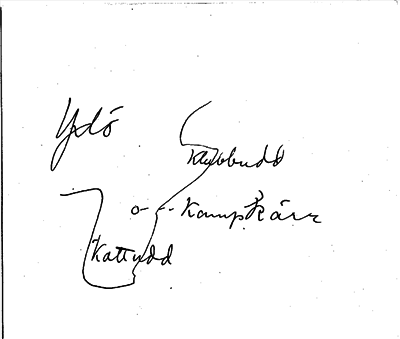 Ydö
Klubbudd
Kampkärr
Kattudd